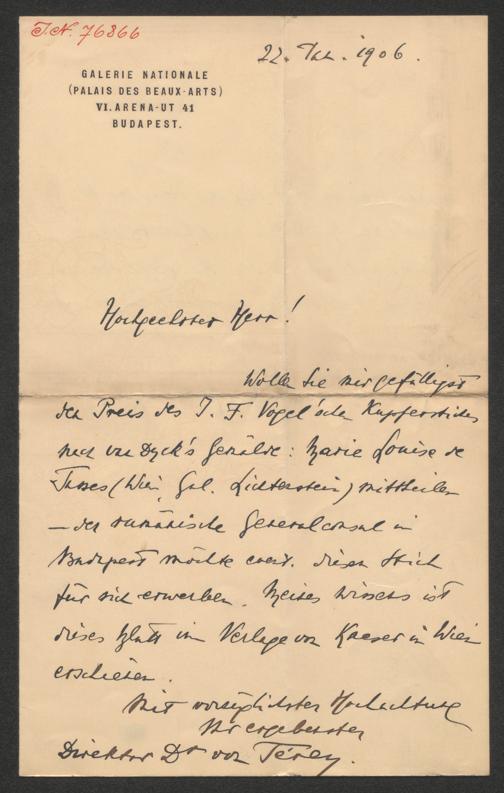 I.N. 76866
22. Jan. 1906.
GALERIE NATIONALE
(PALAIS DES BEAUX-ARTS)
VI. ARENA-UT 41
BUDAPEST.
Hochgeehrter Herr!
Wollen Sie mir gefälligst
den Preis des J. F. Vogel'schen Kupferstiches
nach van Dyck's Gemälde: Marie Louise de
Tasses (Wien, Gal. Lichtenstein) mittheilen
– der rumänische Generalconsul in
Budapest möchte event. diesen Stich
für sich erwerben. Meines Wissens ist
dieses Blatt im Verlage von Kaeser in Wien
erschienen.
Mit vorzüglichster Hochachtung
Ihr ergebenster
Direktor Dr von Térey.